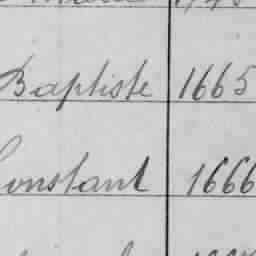 Baptiste 1665
Constant 1666